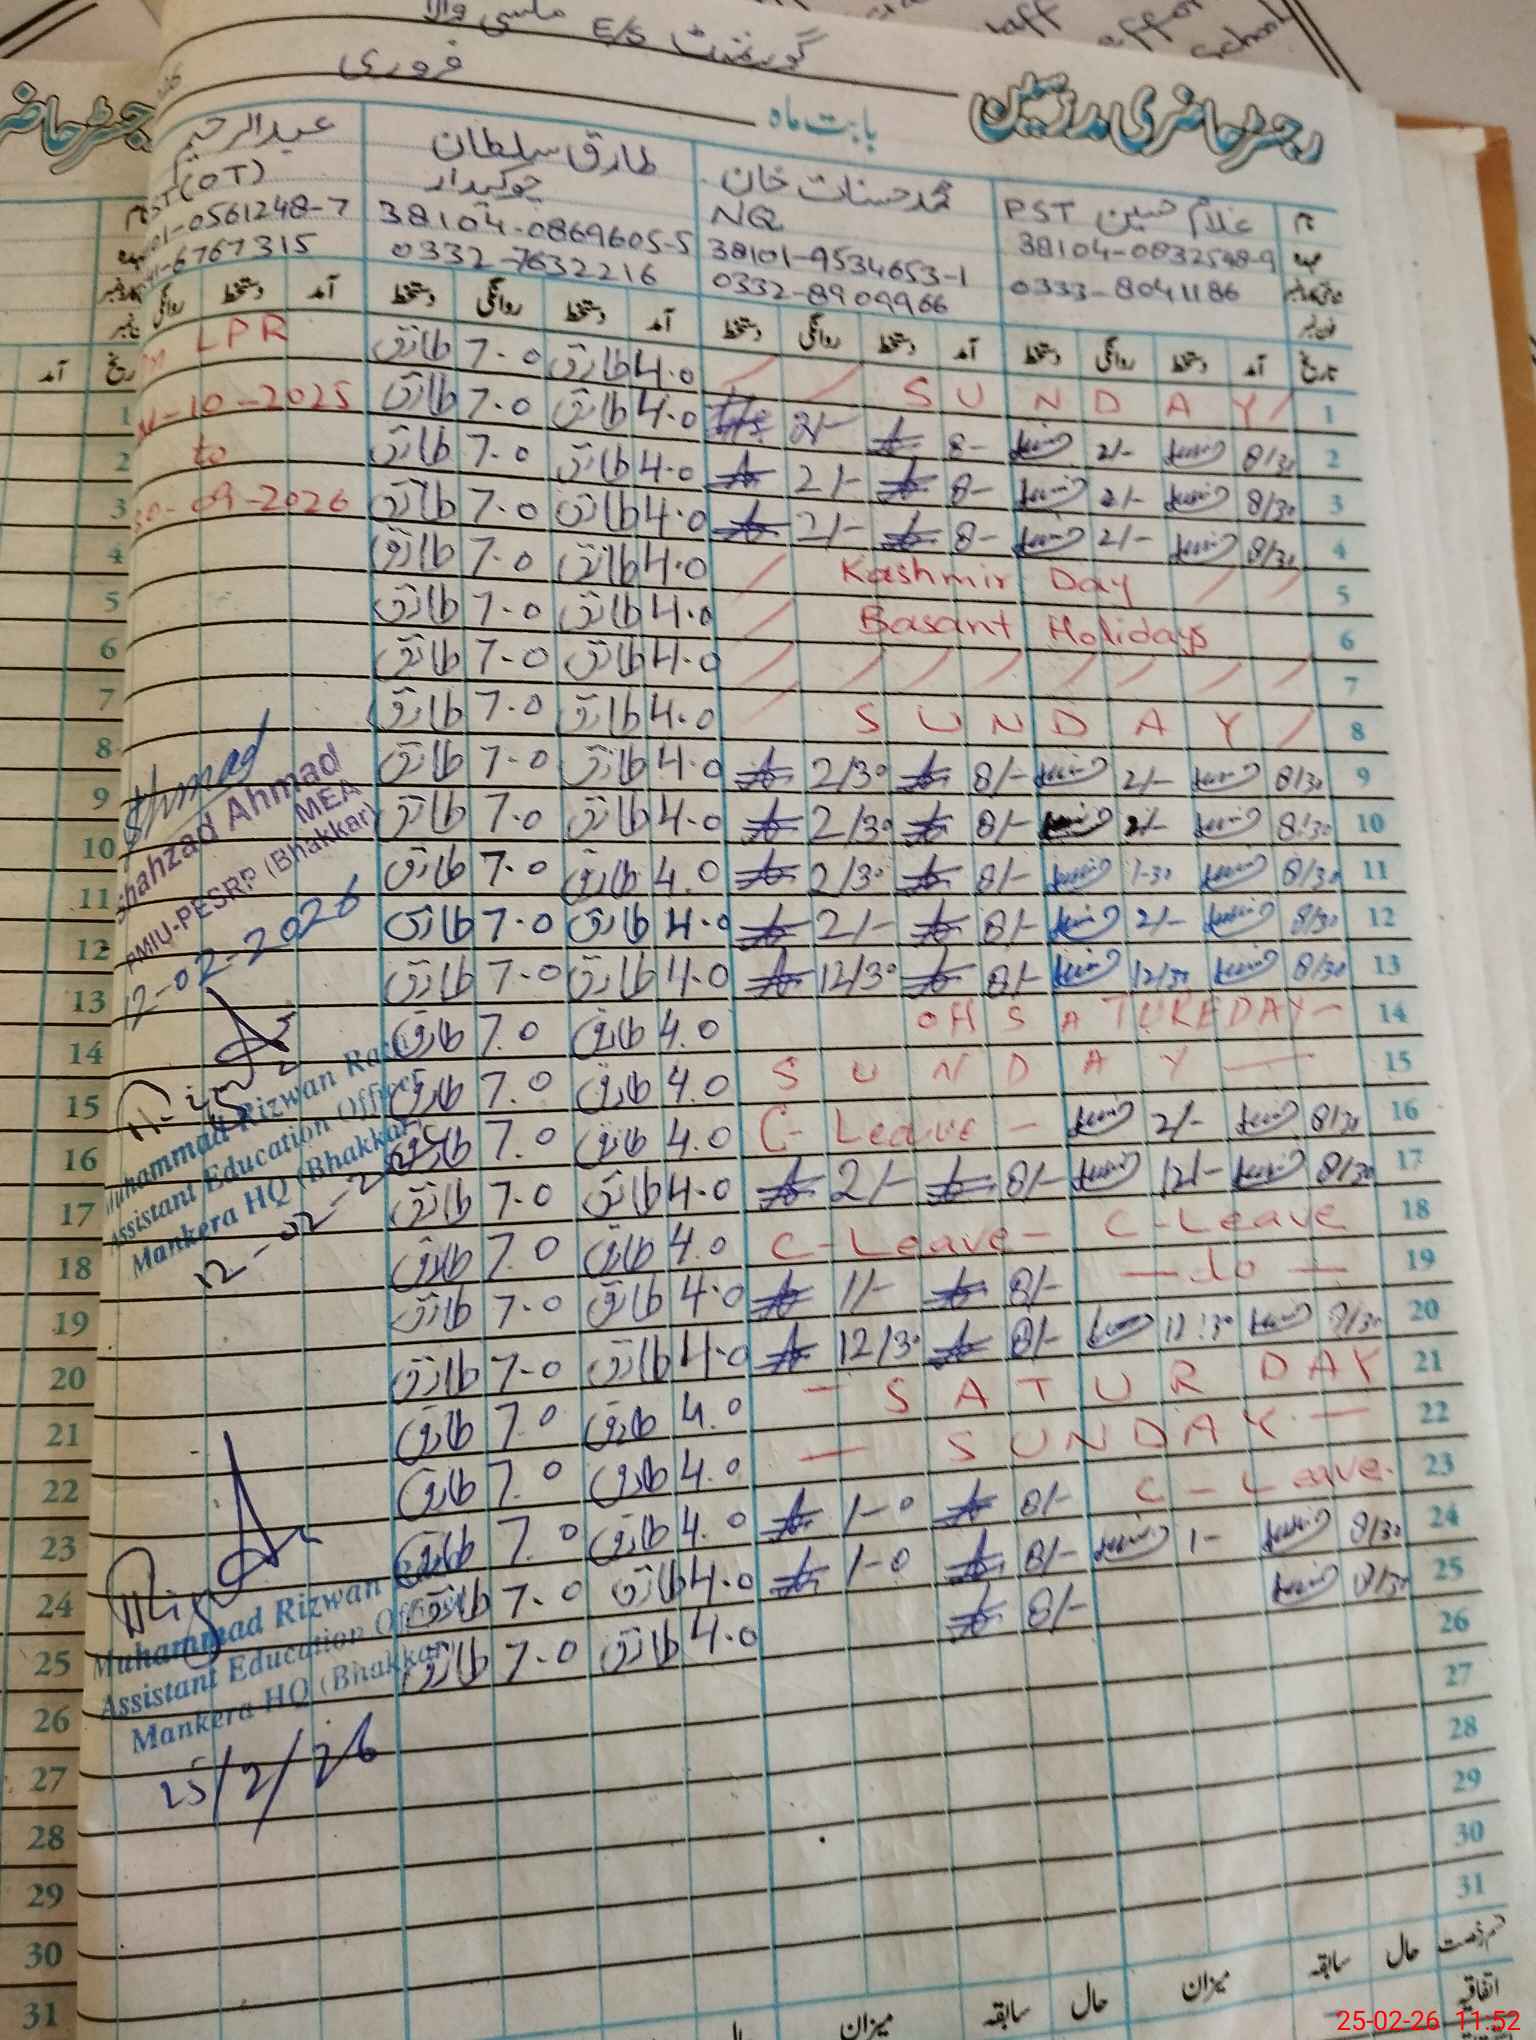 گورنمنٹ E/S ماسی والا
رجسٹر حاضری مدرسین
بابت ماہ
فروری
نام
غلام حسین PST
محمد حسنات خان
طارق سلطان
عبدالرحیم
38104-0832548-9
NQ
چوکیدار
PST(OT)
0333-8041186
38101-9534653-1
38104-0869605-5
01-0561248-7
0332-8909966
0332-7632216
41-6767315
تاریخ آمد دستخط روانگی دستخط آمد دستخط روانگی دستخط آمد دستخط روانگی دستخط آمد دستخط روانگی
1 SUNDAY 4.0 طارق 7.0 طارق LPR
2 8/30 2/- 8- 2/- 4.0 طارق 7.0 طارق -10-2025
3 8/30 2/- 8- 2/- 4.0 طارق 7.0 طارق to
4 8/30 2/- 8- 2/- 4.0 طارق 7.0 طارق 30-09-2026
5 Kashmir Day 4.0 طارق 7.0 طارق
6 Basant Holidays 4.0 طارق 7.0 طارق
7 4.0 طارق 7.0 طارق
8 SUNDAY 4.0 طارق 7.0 طارق
9 8/30 2/- 8/- 2/30 4.0 طارق 7.0 طارق
10 8:30 2/- 8/- 2/30 4.0 طارق 7.0 طارق
11 8/30 1-30 8/- 2/30 4.0 طارق 7.0 طارق
12 8/30 2/- 8/- 2/- 4.0 طارق 7.0 طارق
13 8/30 12/30 8/- 12/30 4.0 طارق 7.0 طارق
14 OH SATUREDAY- 4.0 طارق 7.0 طارق
15 SUNDAY — 4.0 طارق 7.0 طارق
16 8/30 2/- C-Leave - 4.0 طارق 7.0 طارق
17 8/30 12/- 8/- 2/- 4.0 طارق 7.0 طارق
18 C-Leave C-Leave- 4.0 طارق 7.0 طارق
19 — do — 8/- 1/- 4.0 طارق 7.0 طارق
20 8/30 12:30 8/- 12/30 4.0 طارق 7.0 طارق
21 - SATURDAY 4.0 طارق 7.0 طارق
22 — SUNDAY — 4.0 طارق 7.0 طارق
23 C-Leave. 8/- 1-0 4.0 طارق 7.0 طارق
24 8/30 1- 8/- 1-0 4.0 طارق 7.0 طارق
25 8/30 8/- 4.0 طارق 7.0 طارق
26
27
28
29
30
31
Shahzad Ahmad
MEA
PMIU-PESRP (Bhakkar)
12-02-2026
Muhammad Rizwan
Assistant Education Officer
Mankera HQ (Bhakkar)
12-02-2026
Muhammad Rizwan
Assistant Education Officer
Mankera HQ (Bhakkar)
25/2/26
رجسٹر حاضر
تاریخ آمد
1
2
3
4
5
6
7
8
9
10
11
12
13
14
15
16
17
18
19
20
21
22
23
24
25
26
27
28
29
30
31
حال سابقہ میزان حال سابقہ میزان
اتفاقیہ
25-02-26 11:52